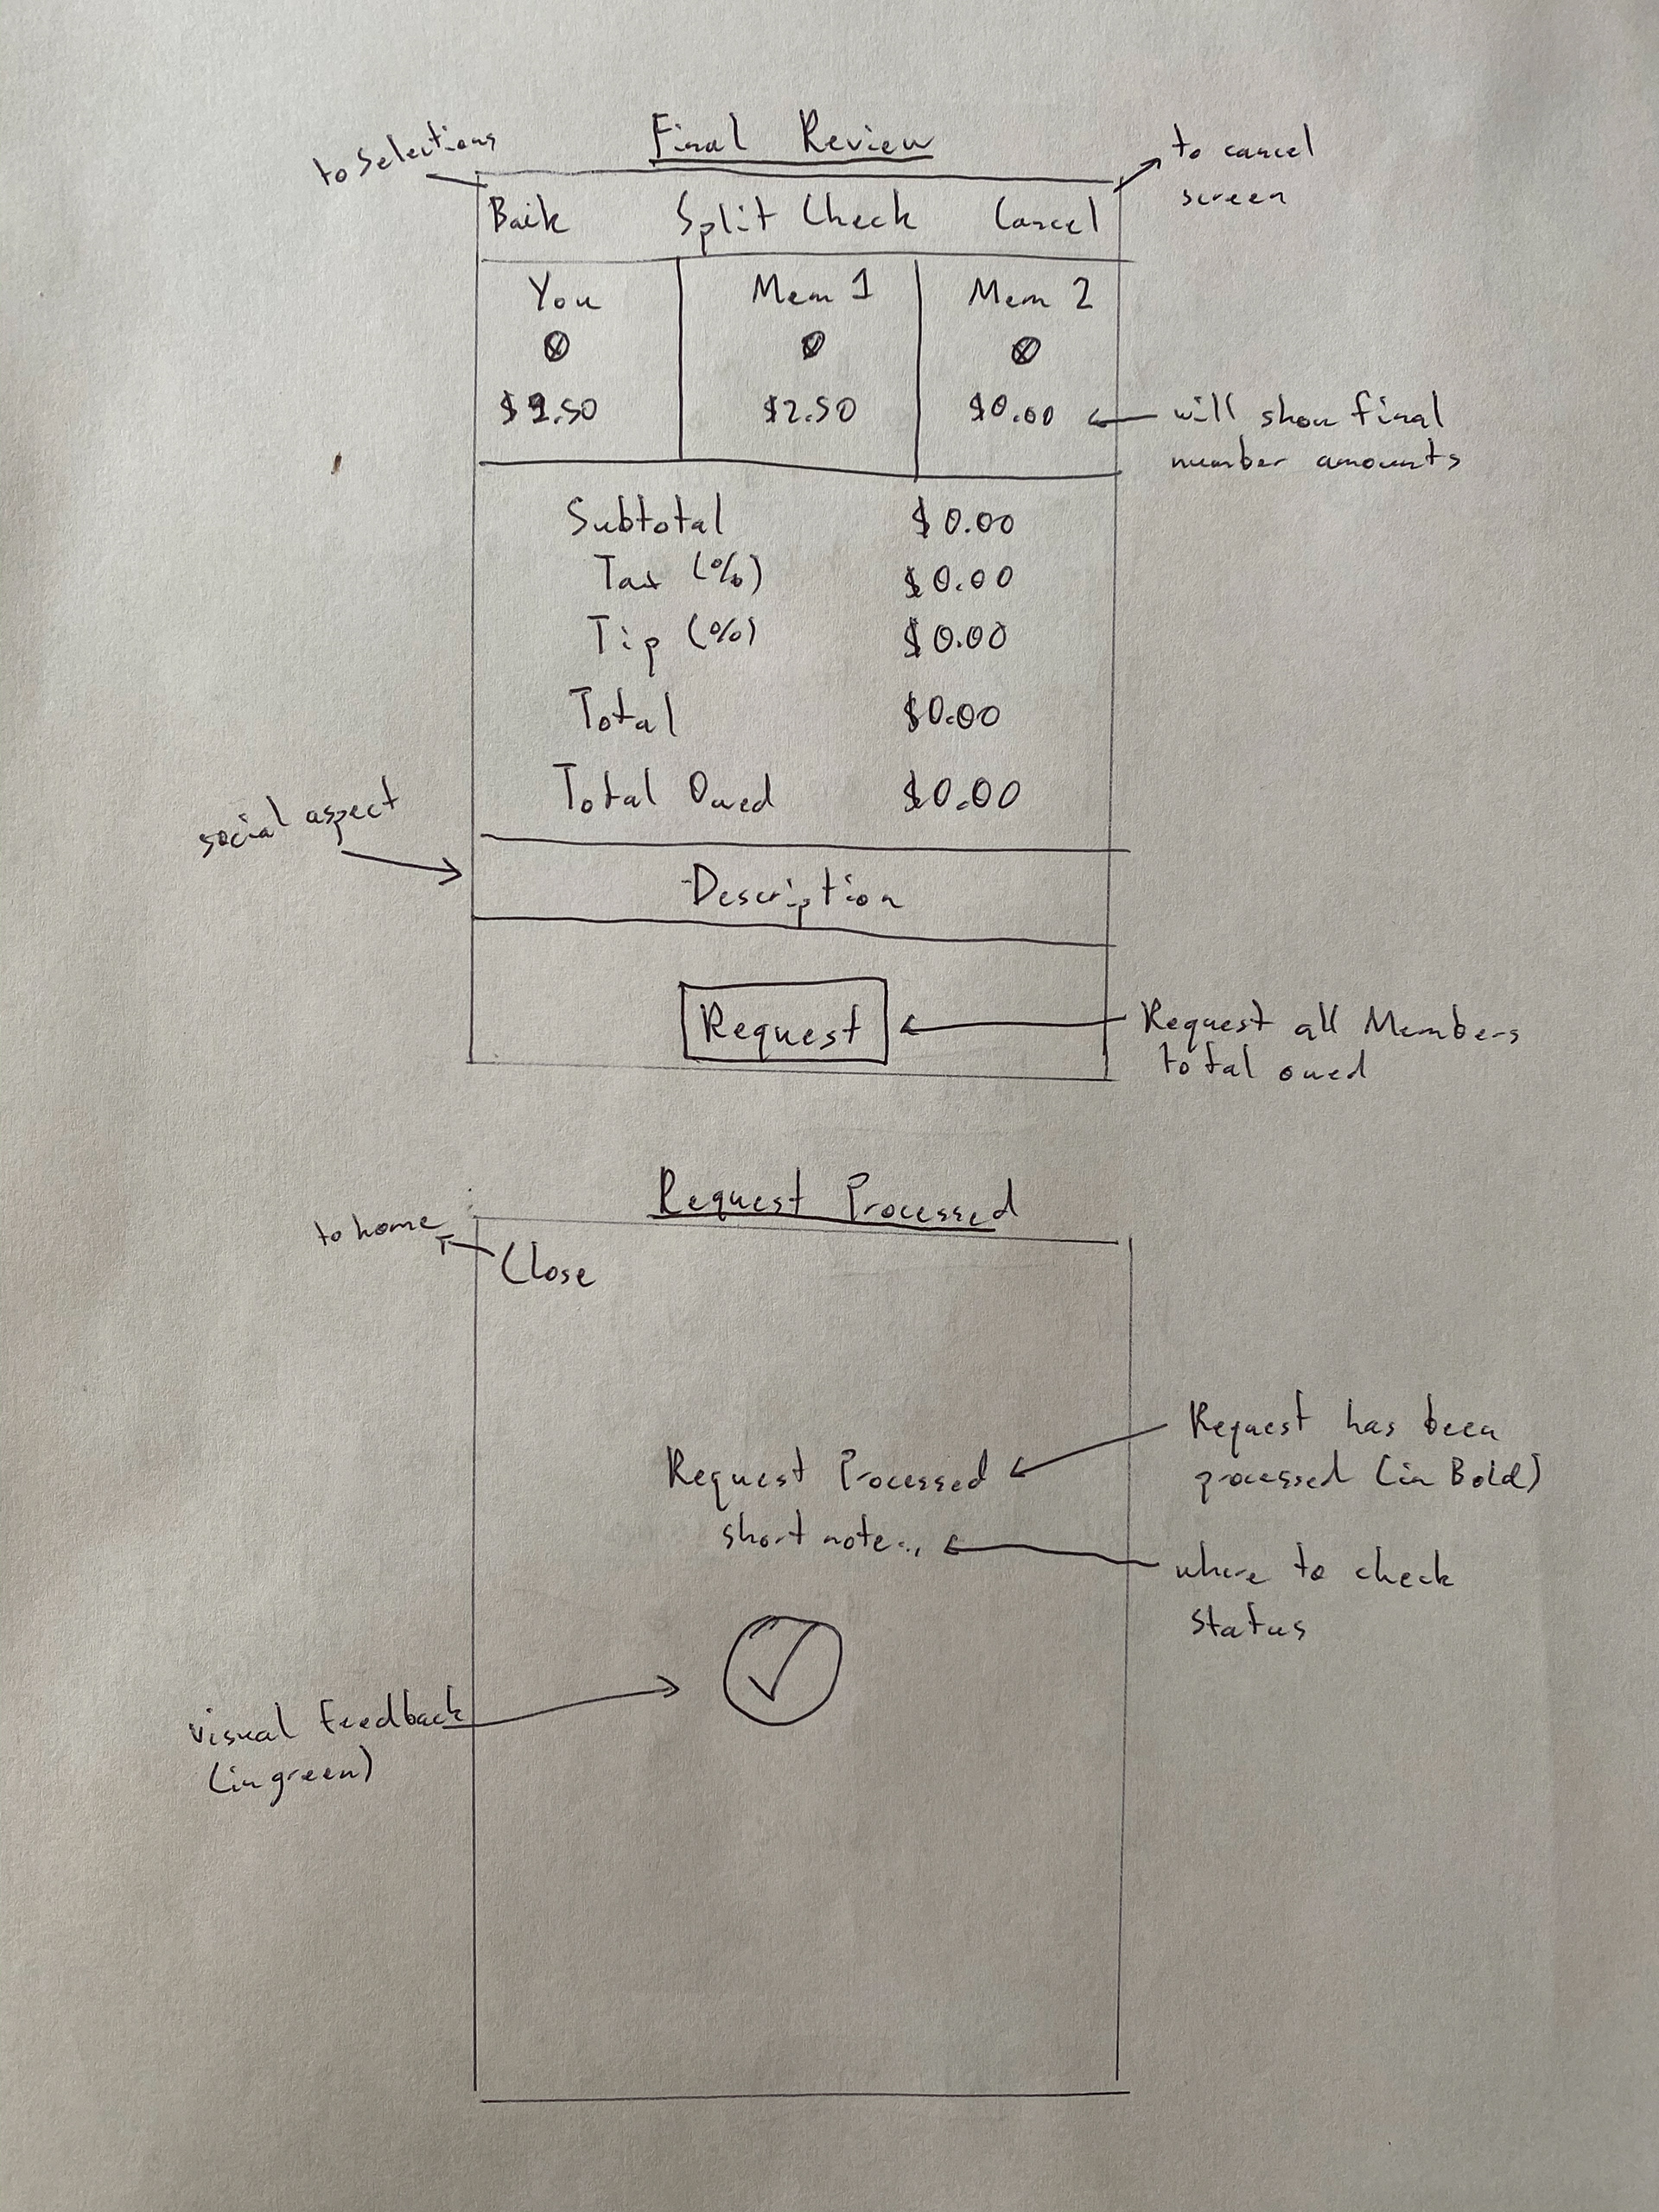 Final Review
to Selections
to cancel
screen
Back Split Check Cancel
You Mem 1 Mem 2
$2.50 $0.00
will show final
number amounts
Subtotal $0.00
Tax (%) $0.00
Tip (%) $0.00
Total $0.00
Total Owed $0.00
social aspect
Description
Request
Request all Members
total owed
Request Processed
to home
Close
Request has been
processed (in Bold)
Request Processed
short note...
where to check
status
visual feedback
(in green)